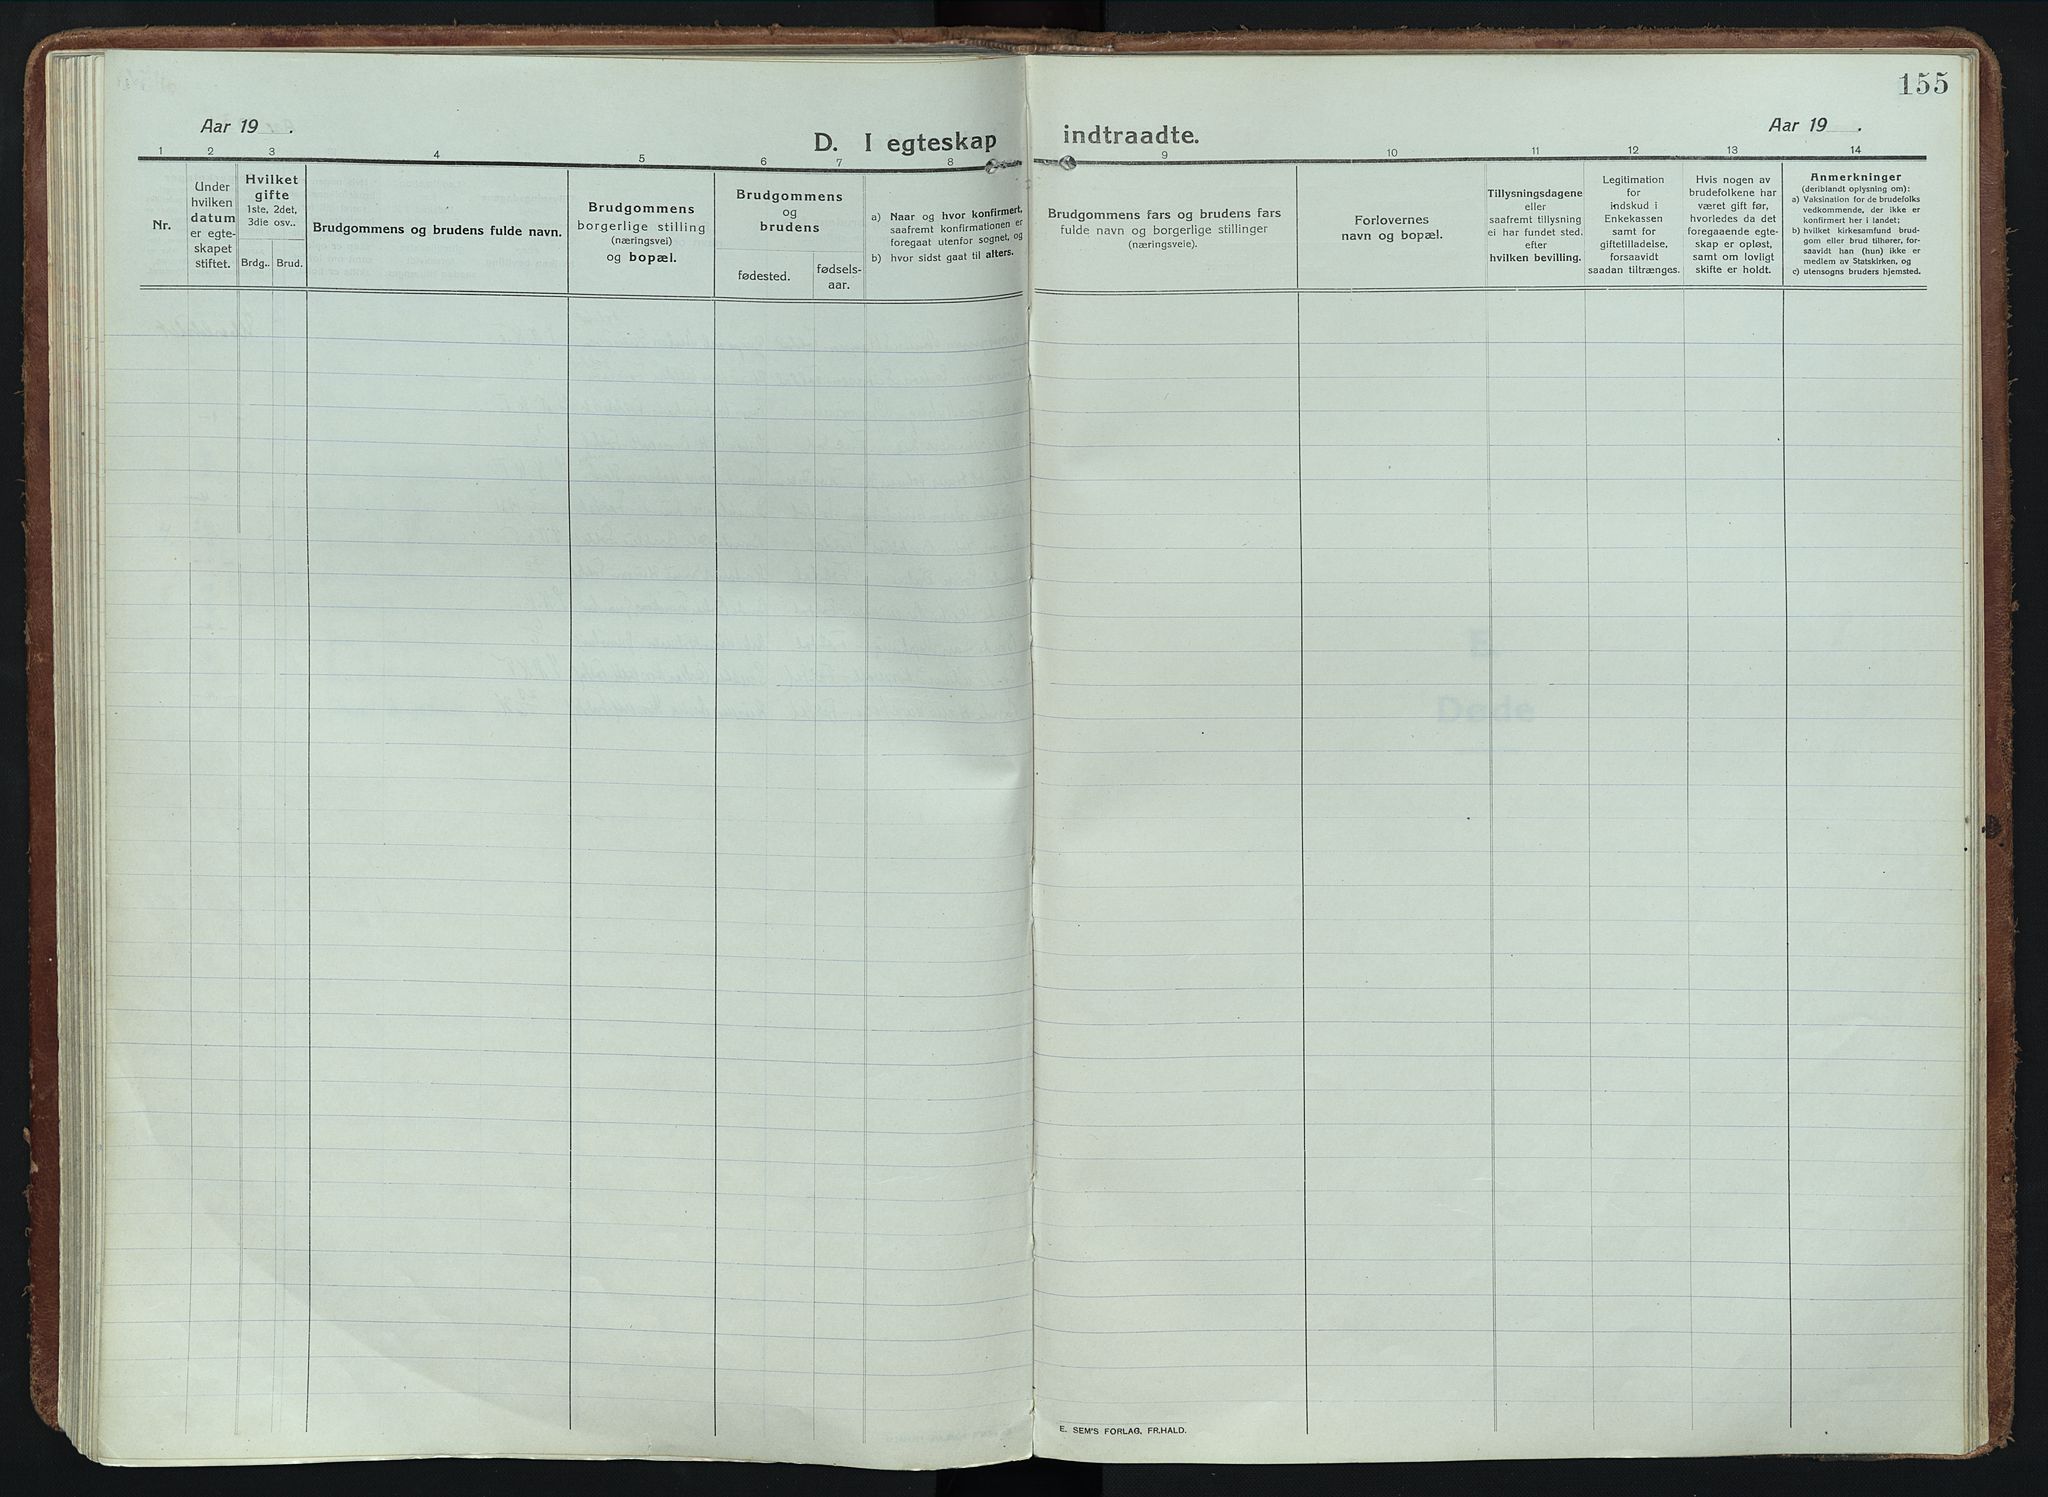 155
Aar 19 .
D. I egteskap indtraadte.
Aar 19 .
1 2 3 4 5 6 7 8 9 10 11 12 13 14
Nr.
Under
hvilken
datum
er egte-
skapet
stiftet.
Hvilket
gifte
1ste, 2det,
3die osv..
Brdg.. Brud.
Brudgommens og brudens fulde navn.
Brudgommens
borgerlige stilling
(næringsvei)
og bopæl.
Brudgommens
og
brudens
fødested.
fødsels-
aar.
a) Naar og hvor konfirmert,
saafremt konfirmationen er
foregaat utenfor sognet, og
b) hvor sidst gaat til alters.
Brudgommens fars og brudens fars
fulde navn og borgerlige stillinger
(næringsveie).
Forlovernes
navn og bopæl.
Tillysningsdagene
eller
saafremt tillysning
ei har fundet sted,
efter
hvilken bevilling.
Legitimation
for
indskud i
Enkekassen
samt for
giftetilladelse,
forsaavidt
saadan tiltrænges.
Hvis nogen av
brudefolkene har
været gift før,
hvorledes da det
foregaaende egte-
skap er opløst,
samt om lovligt
skifte er holdt.
Anmerkninger
(deriblandt oplysning om):
a) Vaksination for de brudefolks
vedkommende, der ikke er
konfirmert her i landet;
b) hvilket kirkesamfund brud-
gom eller brud tilhører, for-
saavidt han (hun) ikke er
medlem av Statskirken, og
c) utensogns bruders hjemsted.
E.
Døde
E. SEM'S FORLAG, FR.HALD.